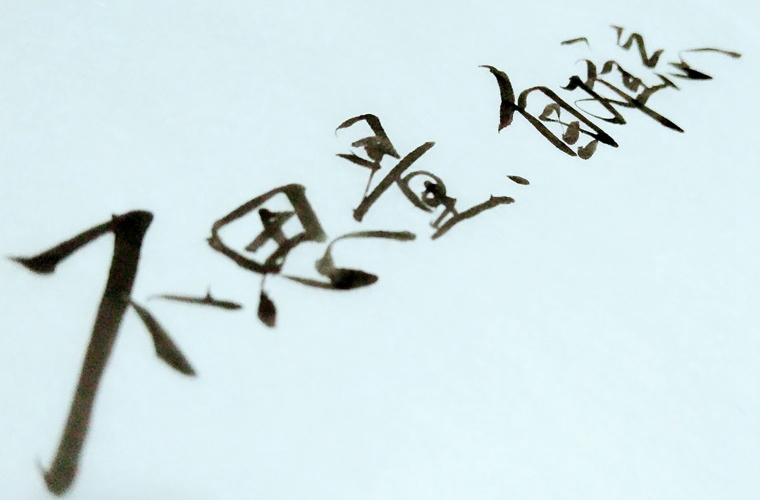 不思量，自难忘